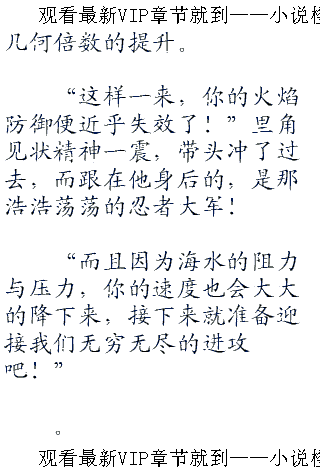 观看最新VIP章节就到——小说
几何倍数的提升。
“这样一来，你的火焰
防御便近乎失效了！”里角
见状精神一震，带头冲了过
去，而跟在他身后的，是那
浩浩荡荡的忍者大军！
“而且因为海水的阻力
与压力，你的速度也会大大
的降下来，接下来就准备迎
接我们无穷无尽的进攻
吧！”
。
观看最新VIP章节就到——小说